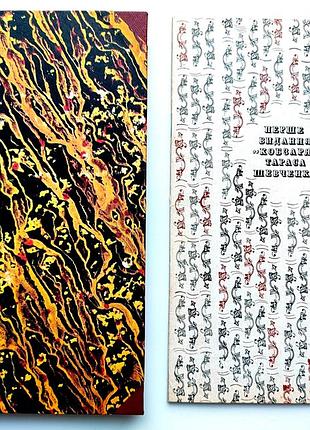 ПЕРШЕ
ВИДАННЯ
«КОБЗАРЯ»
ТАРАСА
ШЕВЧЕНКА